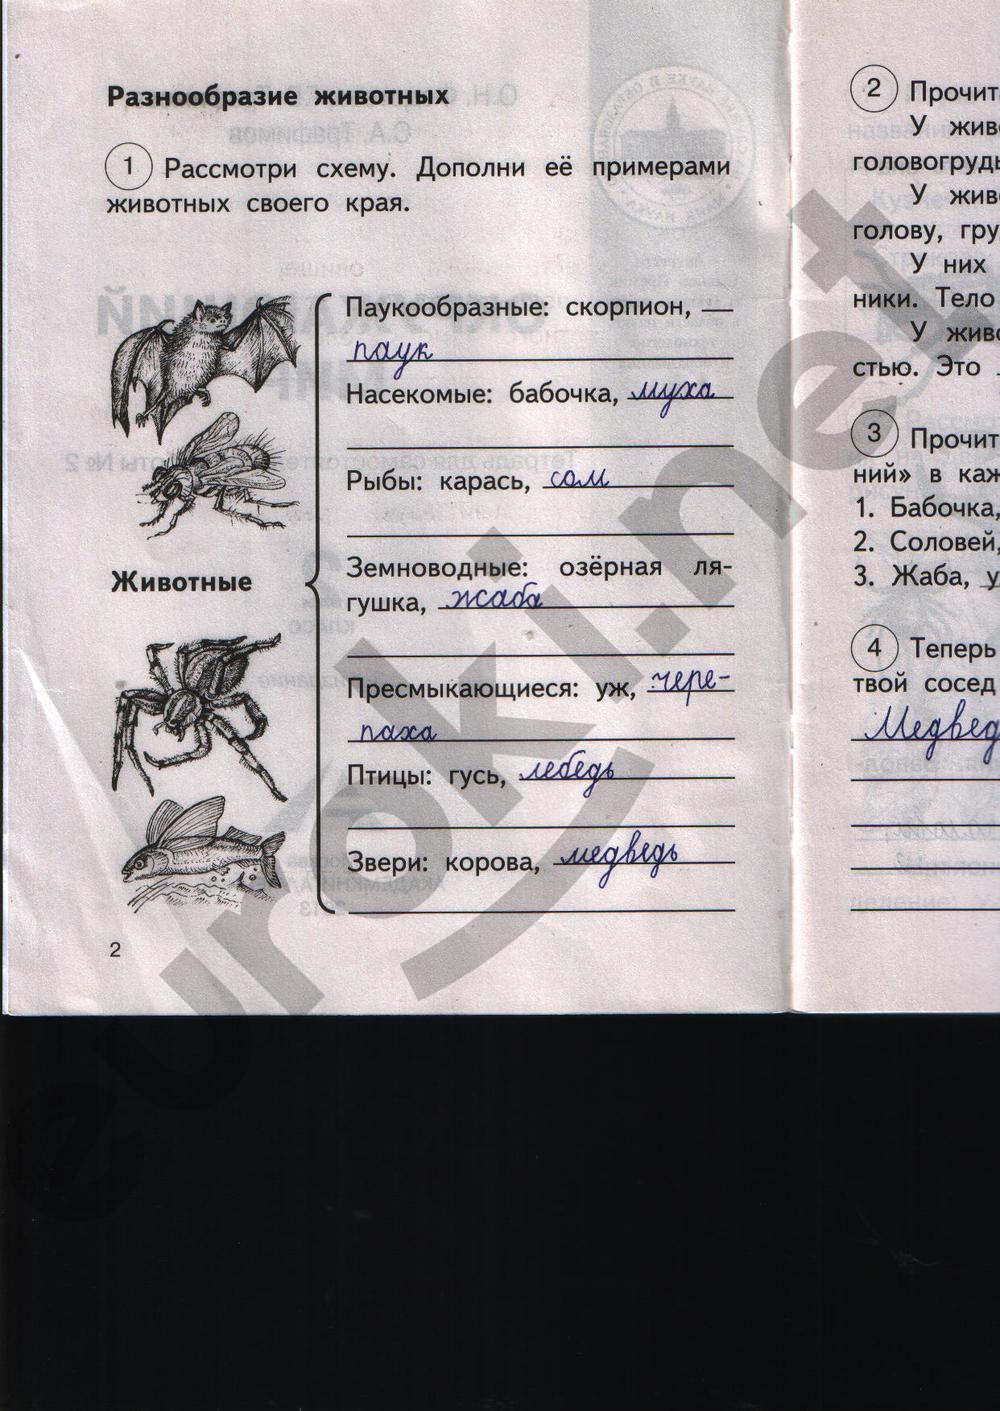 Разнообразие животных
1 Рассмотри схему. Дополни её примерами
животных своего края.
Паукообразные: скорпион,
паук
Насекомые: бабочка, муха
Рыбы: карась, сом
Животные
Земноводные: озёрная ля-
гушка, жаба
Пресмыкающиеся: уж, чере-
паха
Птицы: гусь, лебедь
Звери: корова, медведь
2
2 Прочит
У живо
головогрудь
У живо
голову, гру
У них
ники. Тело
У живо
стью. Это
3 Прочит
ний» в каж
1. Бабочка,
2. Соловей,
3. Жаба, у
4 Теперь
твой сосед
Медвед
euroki.net